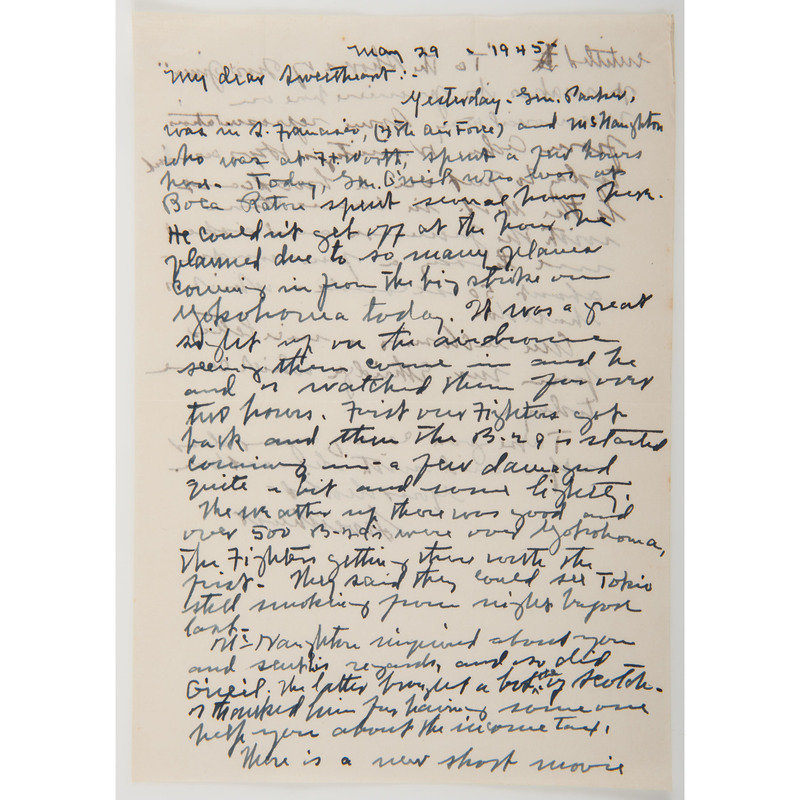 May 29 - 1945
My dear Sweetheart:-
Yesterday - Gen. Parker,
was in S. Francisco, (4th Air Force) and McNaughton
who was at Ft Worth, spent a few hours
here. Today, Gen. O'neil who was at
Boca Raton spent several hours here.
He couldn't get off at the hour he
planned due to so many planes
coming in from the big strike on
Yokohoma today. It was a great
sight up on the airdrome
seeing them come in and he
and I watched them for over
two hours. First our Fighters got
back and then the B-29's started
coming in - a few damaged
quite a bit and some lightly.
The weather up there was good and
over 500 B-29's were over Yokohoma,
the Fighters getting there with the
first. They said they could see Tokio
still smoking from night before
last.
McNaughton inquired about you
and sent his regards, and so did
O'neil. The latter brought a bottle of Scotch.
I thanked him for having some one
help you about the income tax.
There is a new short movie